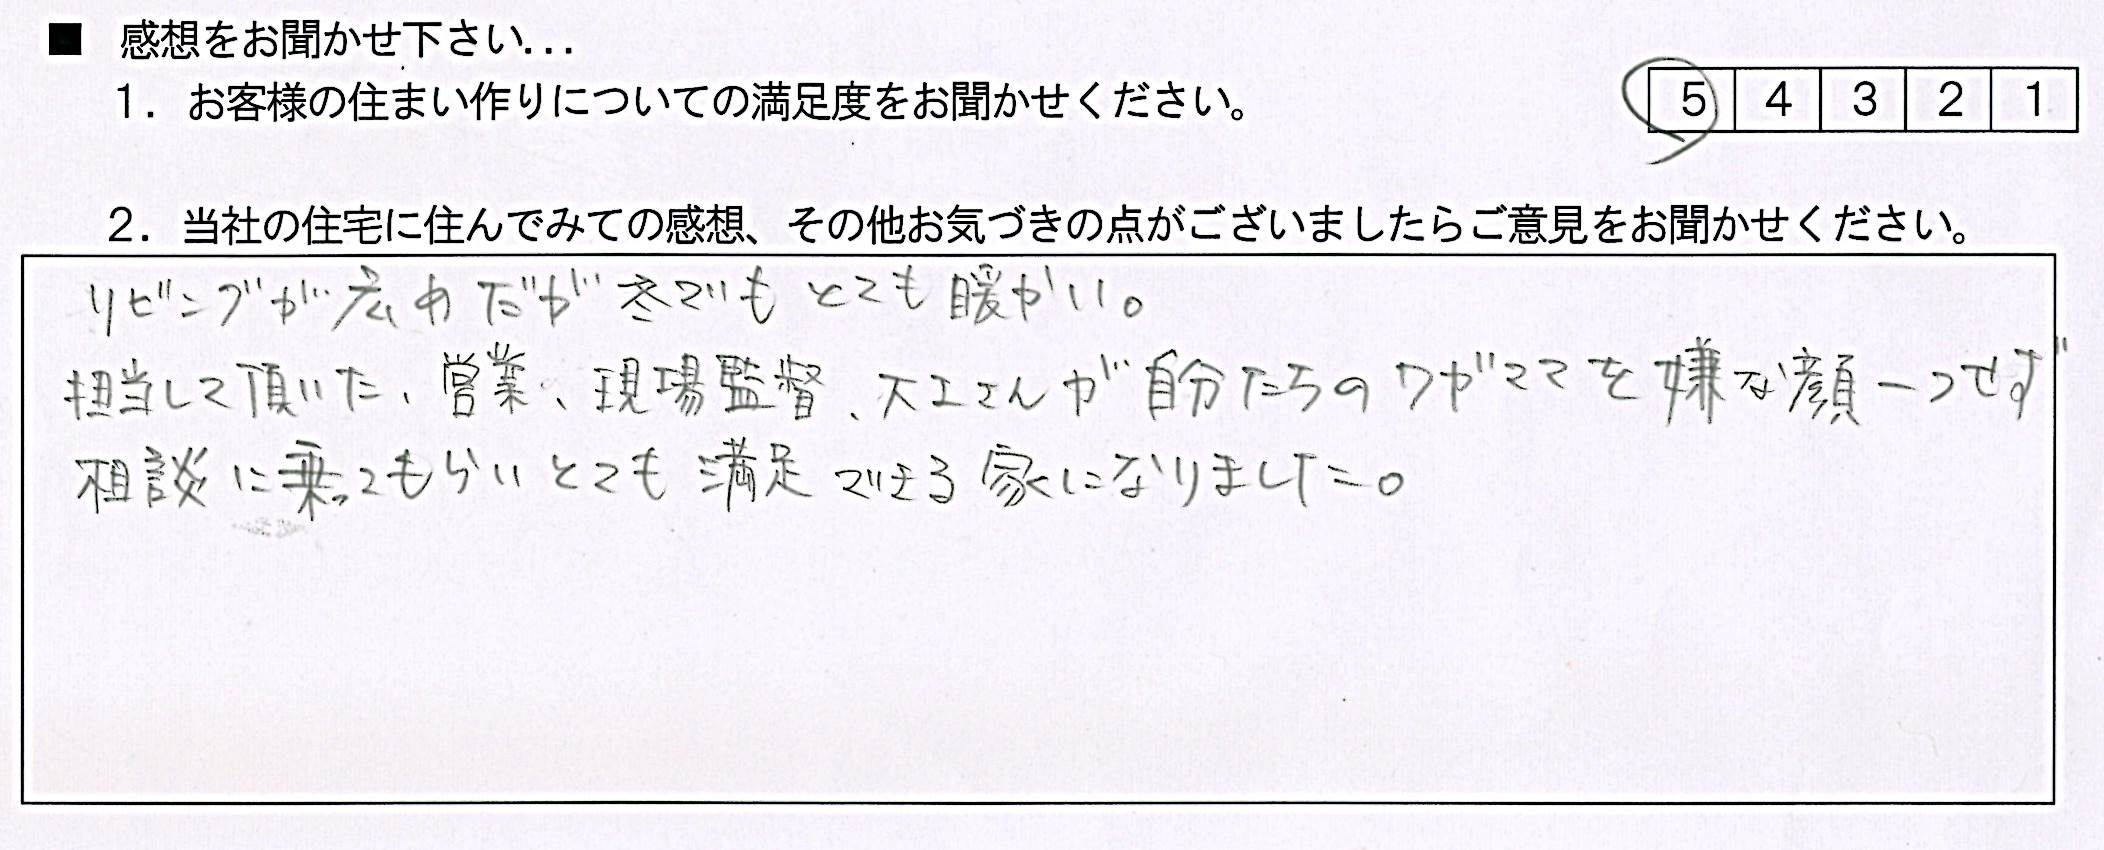 ■ 感想をお聞かせ下さい...
1. お客様の住まい作りについての満足度をお聞かせください。 5 4 3 2 1
2. 当社の住宅に住んでみての感想、その他お気づきの点がございましたらご意見をお聞かせください。
リビングが広めだが冬でもとても暖かい。
担当して頂いた、営業、現場監督、大工さんが自分たちのワガママを嫌な顔一つせず
相談に乗ってもらいとても満足できる家になりました。